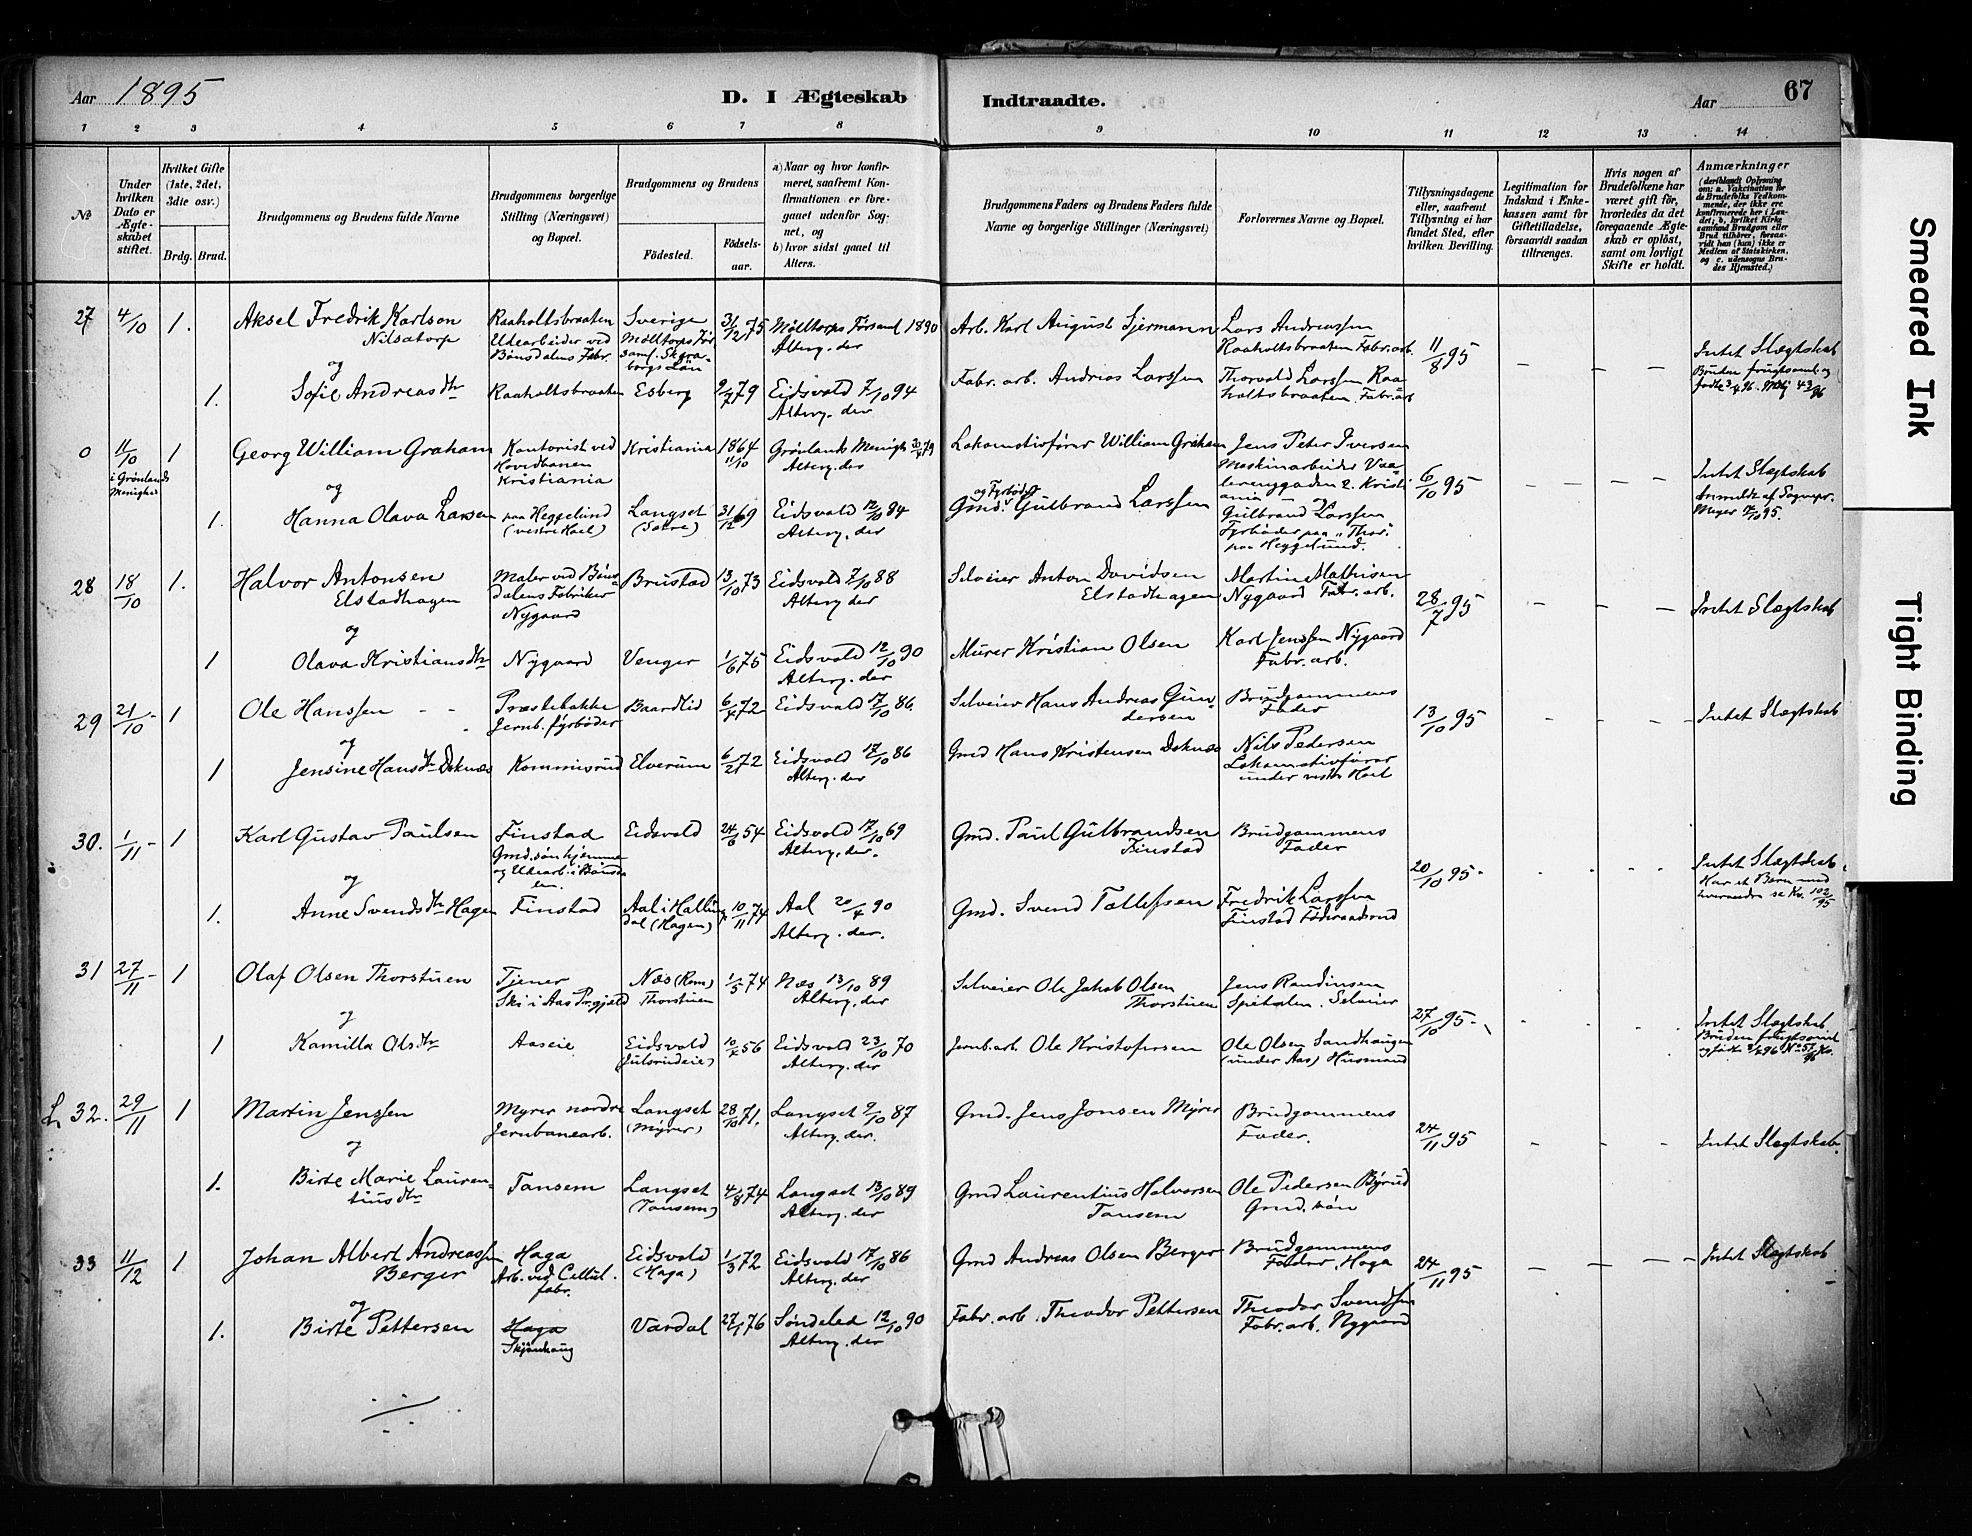 Aar 1895
D. I Ægteskab Indtraadte.
Aar 67
1 2 3 4 5 6 7 8 9 10 11 12 13 14
No
Under hvilken Dato er Ægteskabet stiftet.
Hvilket Gifte (1ste, 2det, 3die osv.)
Brdg. Brud.
Brudgommens og Brudens fulde Navne
Brudgommens borgerlige Stilling (Næringsvei) og Bopæl.
Brudgommens og Brudens
Fødested.
Fødselsaar.
a) Naar og hvor konfirmeret, saafremt Konfirmationen er foregaaet udenfor Sognet, og
b) hvor sidst gaaet til Alters.
Brudgommens Faders og Brudens Faders fulde Navne og borgerlige Stillinger (Næringsvei)
Forlovernes Navne og Bopæl.
Tillysningsdagene eller, saafremt Tillysning ei har fundet Sted, efter hvilken Bevilling.
Legitimation for Indskud i Enkekassen samt for Giftetilladelse, forsaavidt saadan tiltrænges.
Hvis nogen af Brudefolkene har været gift før, hvorledes da det foregaaende Ægteskab er opløst, samt om lovligt Skifte er holdt.
Anmærkninger
(deriblandt Oplysning om: a. Vakcination for de Brudefolks Vedkommende, der ikke ere konfirmerede her i Landet; b. hvilket Kirkesamfund Brudgom eller Brud tilhører, forsaavidt han (hun) ikke er Medlem af Statskirken, og c. udensogns Brudes Hjemsted.)
27 4/10 1. Aksel Fredrik Karlson Nilsatorp Raaholtsbraaten Udearbeider ved Bönsdalens Fabr. Sverige Mölltorps Församl. Skaraborgs Län 31/12 75 Mölltorps Församl 1890 Alterg. der Arb. Karl August Sjermann Lars Andreassen Raaholtsbraaten Fabr. arb. 11/8 95 – – – Intet Slægtskab
og
1. Sofie Andreasdtr Raaholtsbraaten Esberg 9/7 79 Eidsvold 7/10 94 Alterg. der Fabr. arb. Andreas Larssen Thorvald Larssen Raaholtsbraaten Fabr. arb Bruden frugtsomel. og
0 11/10 i Grønlands Menighed 1 Georg William Graham Kontorist ved Hovedbanen Kristiania Kristiania 1864 11/10 Grønlands Menigh Alterg. der Lokomotivfører William Graham Jens Peter Iversen Maskinarbeider Vaalerenggaden 2. Kristiania og 6/10 95 – – – – Intet Slægtskab
og
1. Hanna Olava Larsen paa Heggelund (vestre Hael) Langset (Sætre) 31/12 69 Eidsvold 12/10 84 Alterg. der Gmd. og Fyrbøder Gulbrand Larssen Gulbrand Larssen Fyrbøder paa "Thor" paa Heggelund. Anmeldt af Sognepr. Meyer 95.
28 18/10 1. Halvor Antonsen Elstadhagen Maler ved Bönsdalens Fabriker Nygaard Brustad 13/10 73 Eidsvold 7/10 88 Alterg der Selveier Anton Davidsen Elstadhagen Martin Mathisen Nygaard Fabr. arb. 28/7 95 – – – Intet Slægtskab
og
1 Olava Kristiansdtr Nygaard Venger 1/6 75 Eidsvold 12/10 90 Alterg. der Murer Kristian Olsen Karl Jenssen Nygaard Fabr. arb.
29 21/10 - 1 Ole Hanssen - - Præstebakke Jernb. fyrbøder Baardlid 6/4 72 Eidsvold 17/10 86. Selveier Hans Andreas Gundersen Brudgommens Fader 13/10 95 - - - Intet Slægtskab
og
1 Jensine Hansdtr Doknæs Kommisrud Elverum 6/21 72 Eidsvold 17/10 86 Alterg. der Gmd Hans Kristensen Doknæs Nils Pedersen Lokomotivfører under vestre Hael
30. 1/11 - 1 Karl Gustav Paulsen Finstad Gmd. søn hjemme og Udearb. i Bönsdalen. Eidsvold 24/6 54 Eidsvold 17/10 69 Alterg. der. Gmd. Paul Gulbrandsen Finstad Brudgommens Fader 20/10 95 - Intet Slægtskab
og
1. Anne Svendsdtr Hagen Finstad Aal i Hallingdal (Hagen) 10/11 74 Aal 20/4 90 Alterg. der. Gmd. Svend Tollefsen Fredrik Larssen Finstad Føderaadsmd Har et Barn med hverandre se Kv. 102/95
31 27/11 - 1 Olaf Olsen Thorstuen Tjener Ski i Aas Prgjæld Næs (Rom.) Thorstuen 1/5 74 Næs 13/10 89 Alterg. der Selveier Ole Jakob Olsen Thorstuen Jens Randinsen Spetalen. Selveier 27/10 95 - Intet Slægtskab.
og
1 Kamilla Olsdtr Aaseie Eidsvold (Julsrudeie) 10/4 56 Eidsvold 23/10 70 Alterg. der Jernb. arb. Ole Kristofersen Ole Olsen Sandhaugen (under Aas) Husmand Bruden frugtsomel
L 32. 29/11 1 Martin Jenssen Myrer nordre Jernbanearb. Langset (Myrer) 28/10 71. Langset 9/10 87 Alterg. der. Gmd. Jens Jonsen Myrer Brudgommens Fader. 24/11 95 – – – Intet Slægtskab.
og
1. Birte Marie Laurentiusdtr Tansem Langset (Tansem) 4/8 74 Langset 13/10 89 Alterg. der Gmd Laurentius Halvorsen Tansem Ole Pedersen Byrud Gmd. søn
33 11/12 1 Johan Albert Andreassen Berger Haga Arb. ved Cellul. fabr. Eidsvold (Haga) 1/3 72 Eidsvold 17/10 86 Alterg. der Gmd Andreas Olsen Berger Brudgommens Fader, Haga 24/11 95 – – – – Intet Slægtskab
og
1. Birte Pettersen Haga Skjønhaug Vardal 27/1 76 Søndeled 12/10 90 Alterg. der Fabr. arb. Theodor Pettersen Theodor Svendsen Fabr. arb. Nygaard
Smeared Ink
Tight Binding